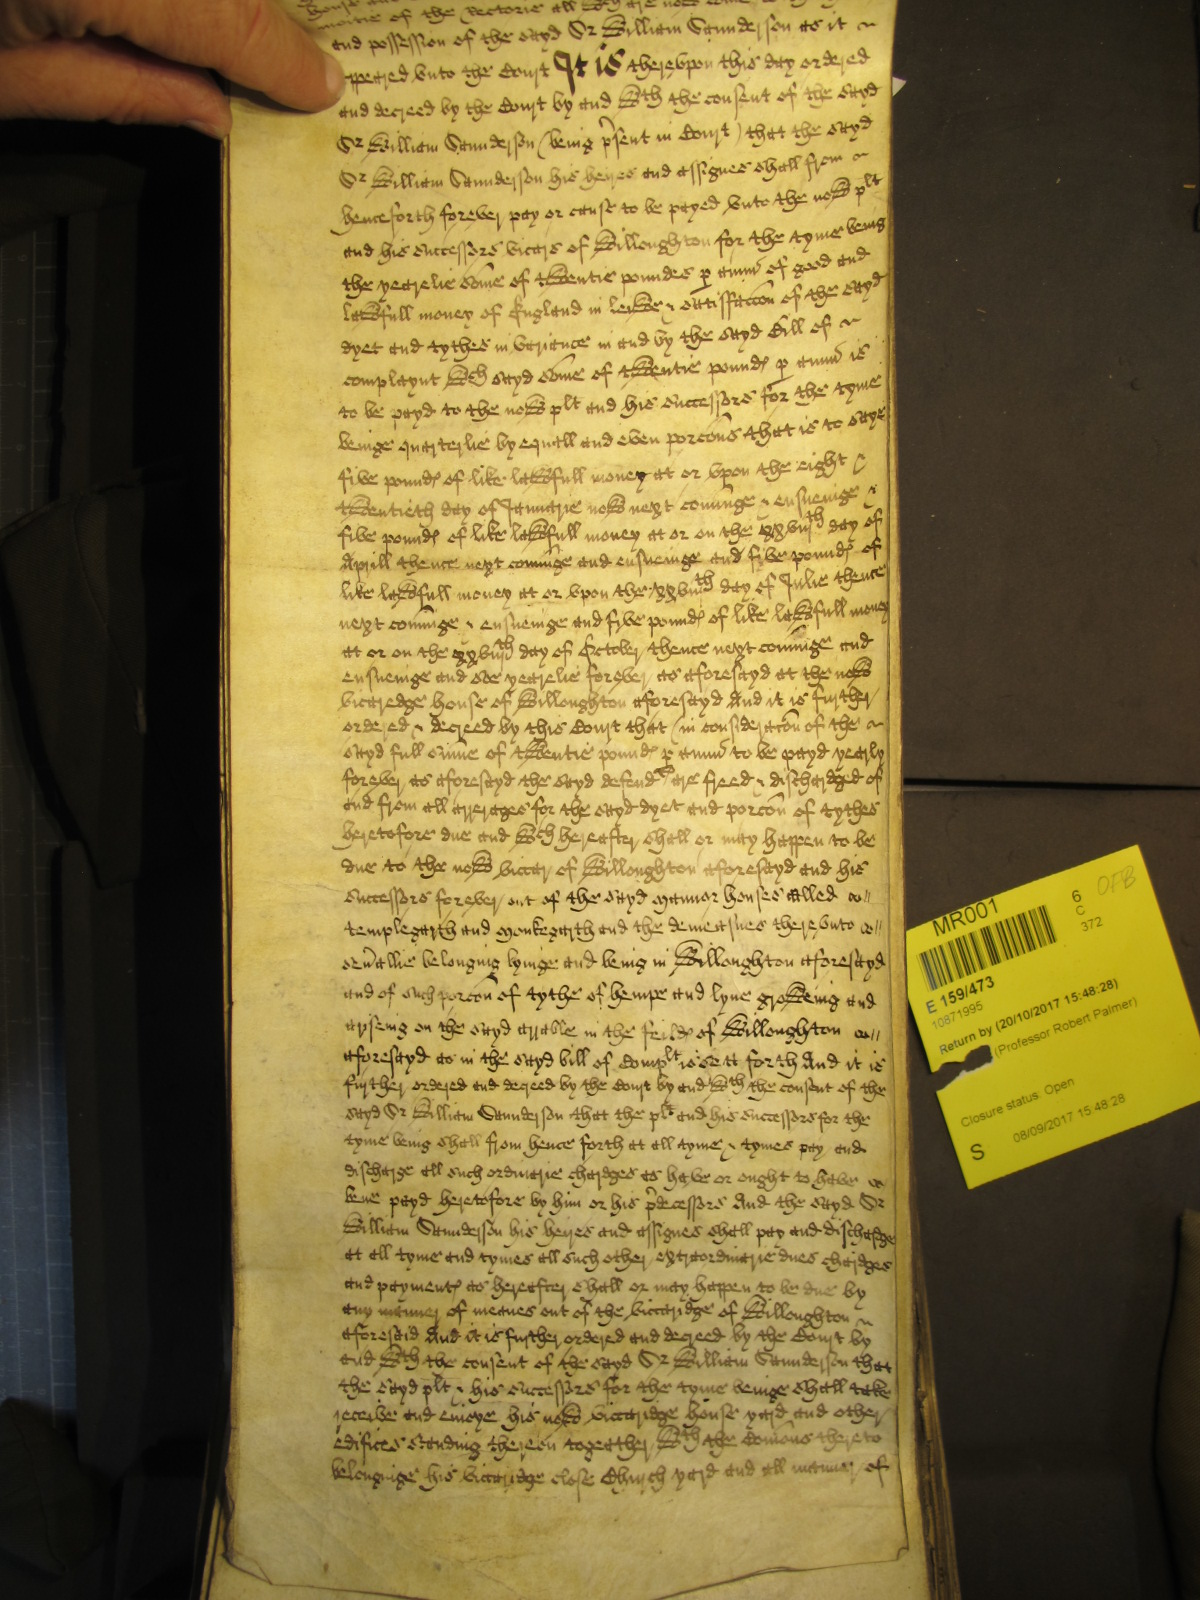 moitie of the Rectorie all wch are now come to the
and possession of the sayd Sr William Saunderson as it
appeared vnto the Court It is therevpon this day ordered
and decreed by the Court by and wth the consent of the sayd
Sr William Saunderson (being p̱sent in Court) that the sayd
Sr William Saunderson his heyres and assignes shall from
henceforth forever pay or cause to be payed vnto the now plt
and his successors vicars of Willoughton for the tyme being
the yearelie some of twentie poundes p annũ of good and
lawfull money of England in leiwe & satisfaccõn of the sayd
dyet and tythes in variance in and by the sayd Bill of
complaynt wch sayd some of twentie pound p annũ is
to be payd to the now plt and his successors for the tyme
beinge quarterlie by equall and even porcõns that is to saye
five pound of like lawfull money at or vpon the eight &
twentieth day of Januarie now next cominge & ensueinge &
five pound of like lawfull money at or on the xxviijth day of
Aprill thence next cominge and ensueinge and five pound of
like lawfull money at or vpon the xxviijth day of Julie thence
next cominge & ensueinge and five pound of like lawfull money
at or on the xxviijth day of October thence next cominge and
ensueinge and soe yearelie forever as aforesayd at the now
vicaredge house of Willoughton aforesayd And it is further
ordered & decreed by this Court that (in consideracõn of the
sayd full sume of twentie pound p annũ to be payd yearly
forever as aforesayd the sayd defendts are freed & dischardged of
and from all arrerages for the sayd dyet and porcõn of tythes
heretofore due and wch hereafter shall or may happen to be
due to the now viccar of Willoughton aforesayd and his
successors forever out of the sayd mannor houses called
Templegarth and Monkegarth and the demeasnes therevnto
sev̱allie belonging lyinge and being in Willoughton aforesayd
and of such porcõn of tythe of hempe and lyne groweing and
ariseing on the sayd arrable in the feild of Willoughton
aforesayd as in the sayd bill of Complt is sett forth And it is
further ordered and decreed by the Court by and wth the consent of the
sayd Sr William Saunderson that the plt and his successors for the
tyme being shall from hence forth at all tyme & tymes pay and
discharge all such ordinarie chardges as have or ought to have
bene payd heretofore by him or his p̱decessors And the sayd Sr
William Saunderson his heyres and assignes shall pay and dischardge
at all tyme and tymes all such other extraordinarie dues chardges
and payment as hereafter shall or may happen to be due by
any manner of meanes out of the viccaridge of Willoughton
aforesaid And it is further ordered and decreed by the Court by
and wth the consent of the sayd Sr William Saunderson that
the sayd plt & his successors for the tyme beinge shall take
receive and enioye his now viccaridge house yard and other
edifices standing thereon together wth the Comõns thereto
belonginge his viccaridge close Church yard and all manner of
MR001
6
C
372
OFB
E 159/473
10871995
Return by (20/10/2017 15:48:28)
(Professor Robert Palmer)
Closure status: Open
S
08/09/2017 15:48:28